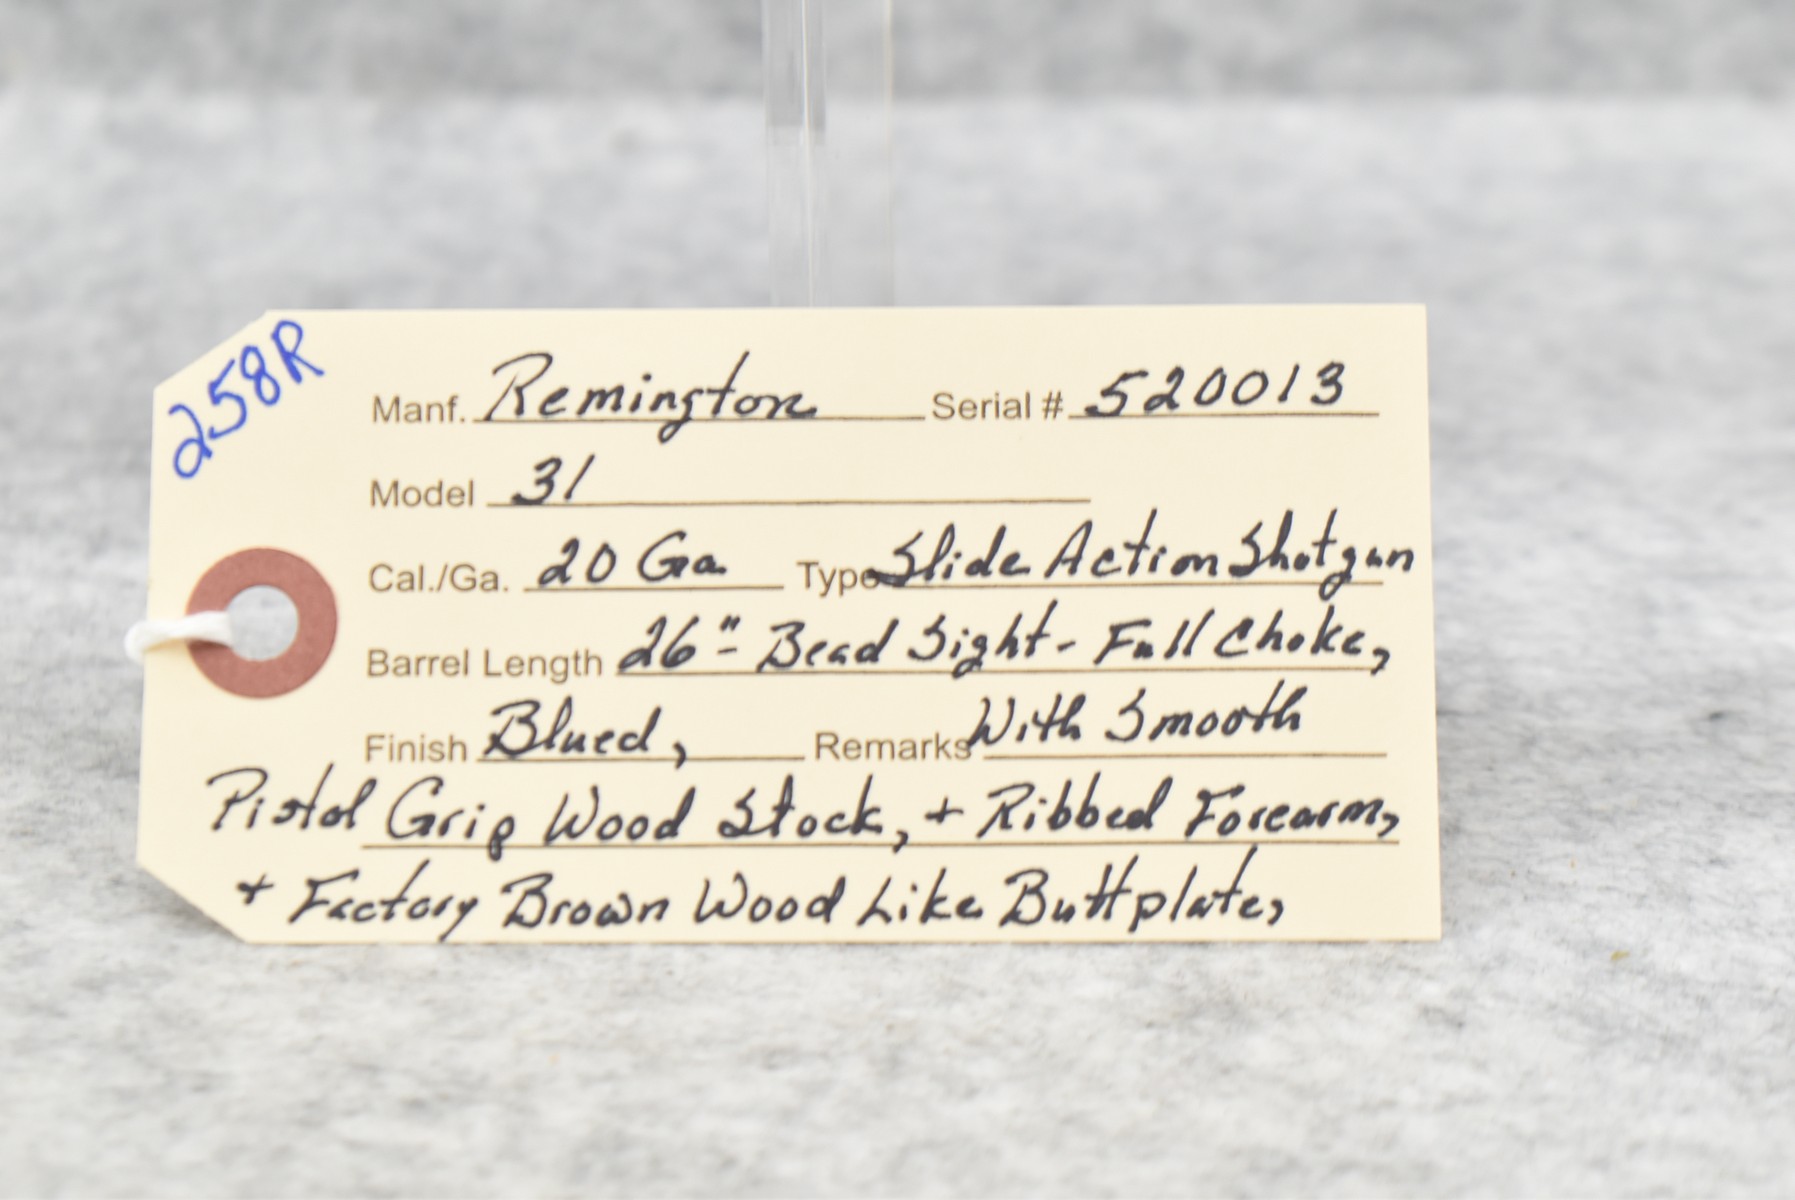 258R
Manf. Remington Serial # 520013
Model 31
Cal./Ga. 20 Ga. Type Slide Action Shotgun
Barrel Length 26" - Bead Sight - Full Choke,
Finish Blued, Remarks With Smooth
Pistol Grip Wood Stock, + Ribbed Forearm,
+ Factory Brown Wood Like Buttplate,